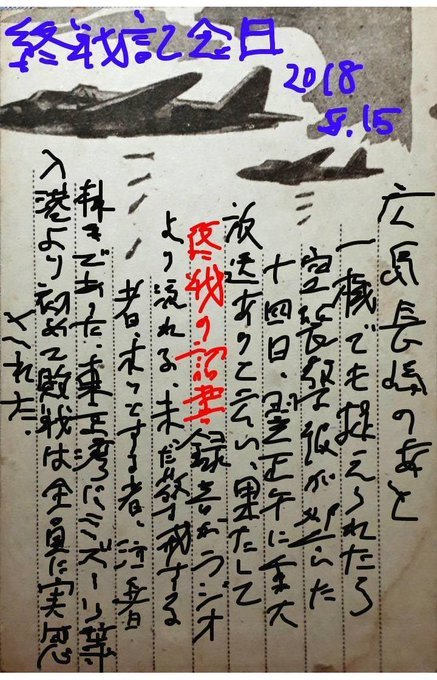 終戦記念日
2018
8.15
広島長崎のあと
一機でも捉えられたら
空襲警報が鳴った
十四日、翌正午に重大
放送ありと云い、果たして
終戦の詔書、録音がラジオ
より流れる、未だ警戒する
者、ホッとする者、泣く者
様々であった、東京湾にミズーリ等
入港より初めて敗戦は全員に実感
された。